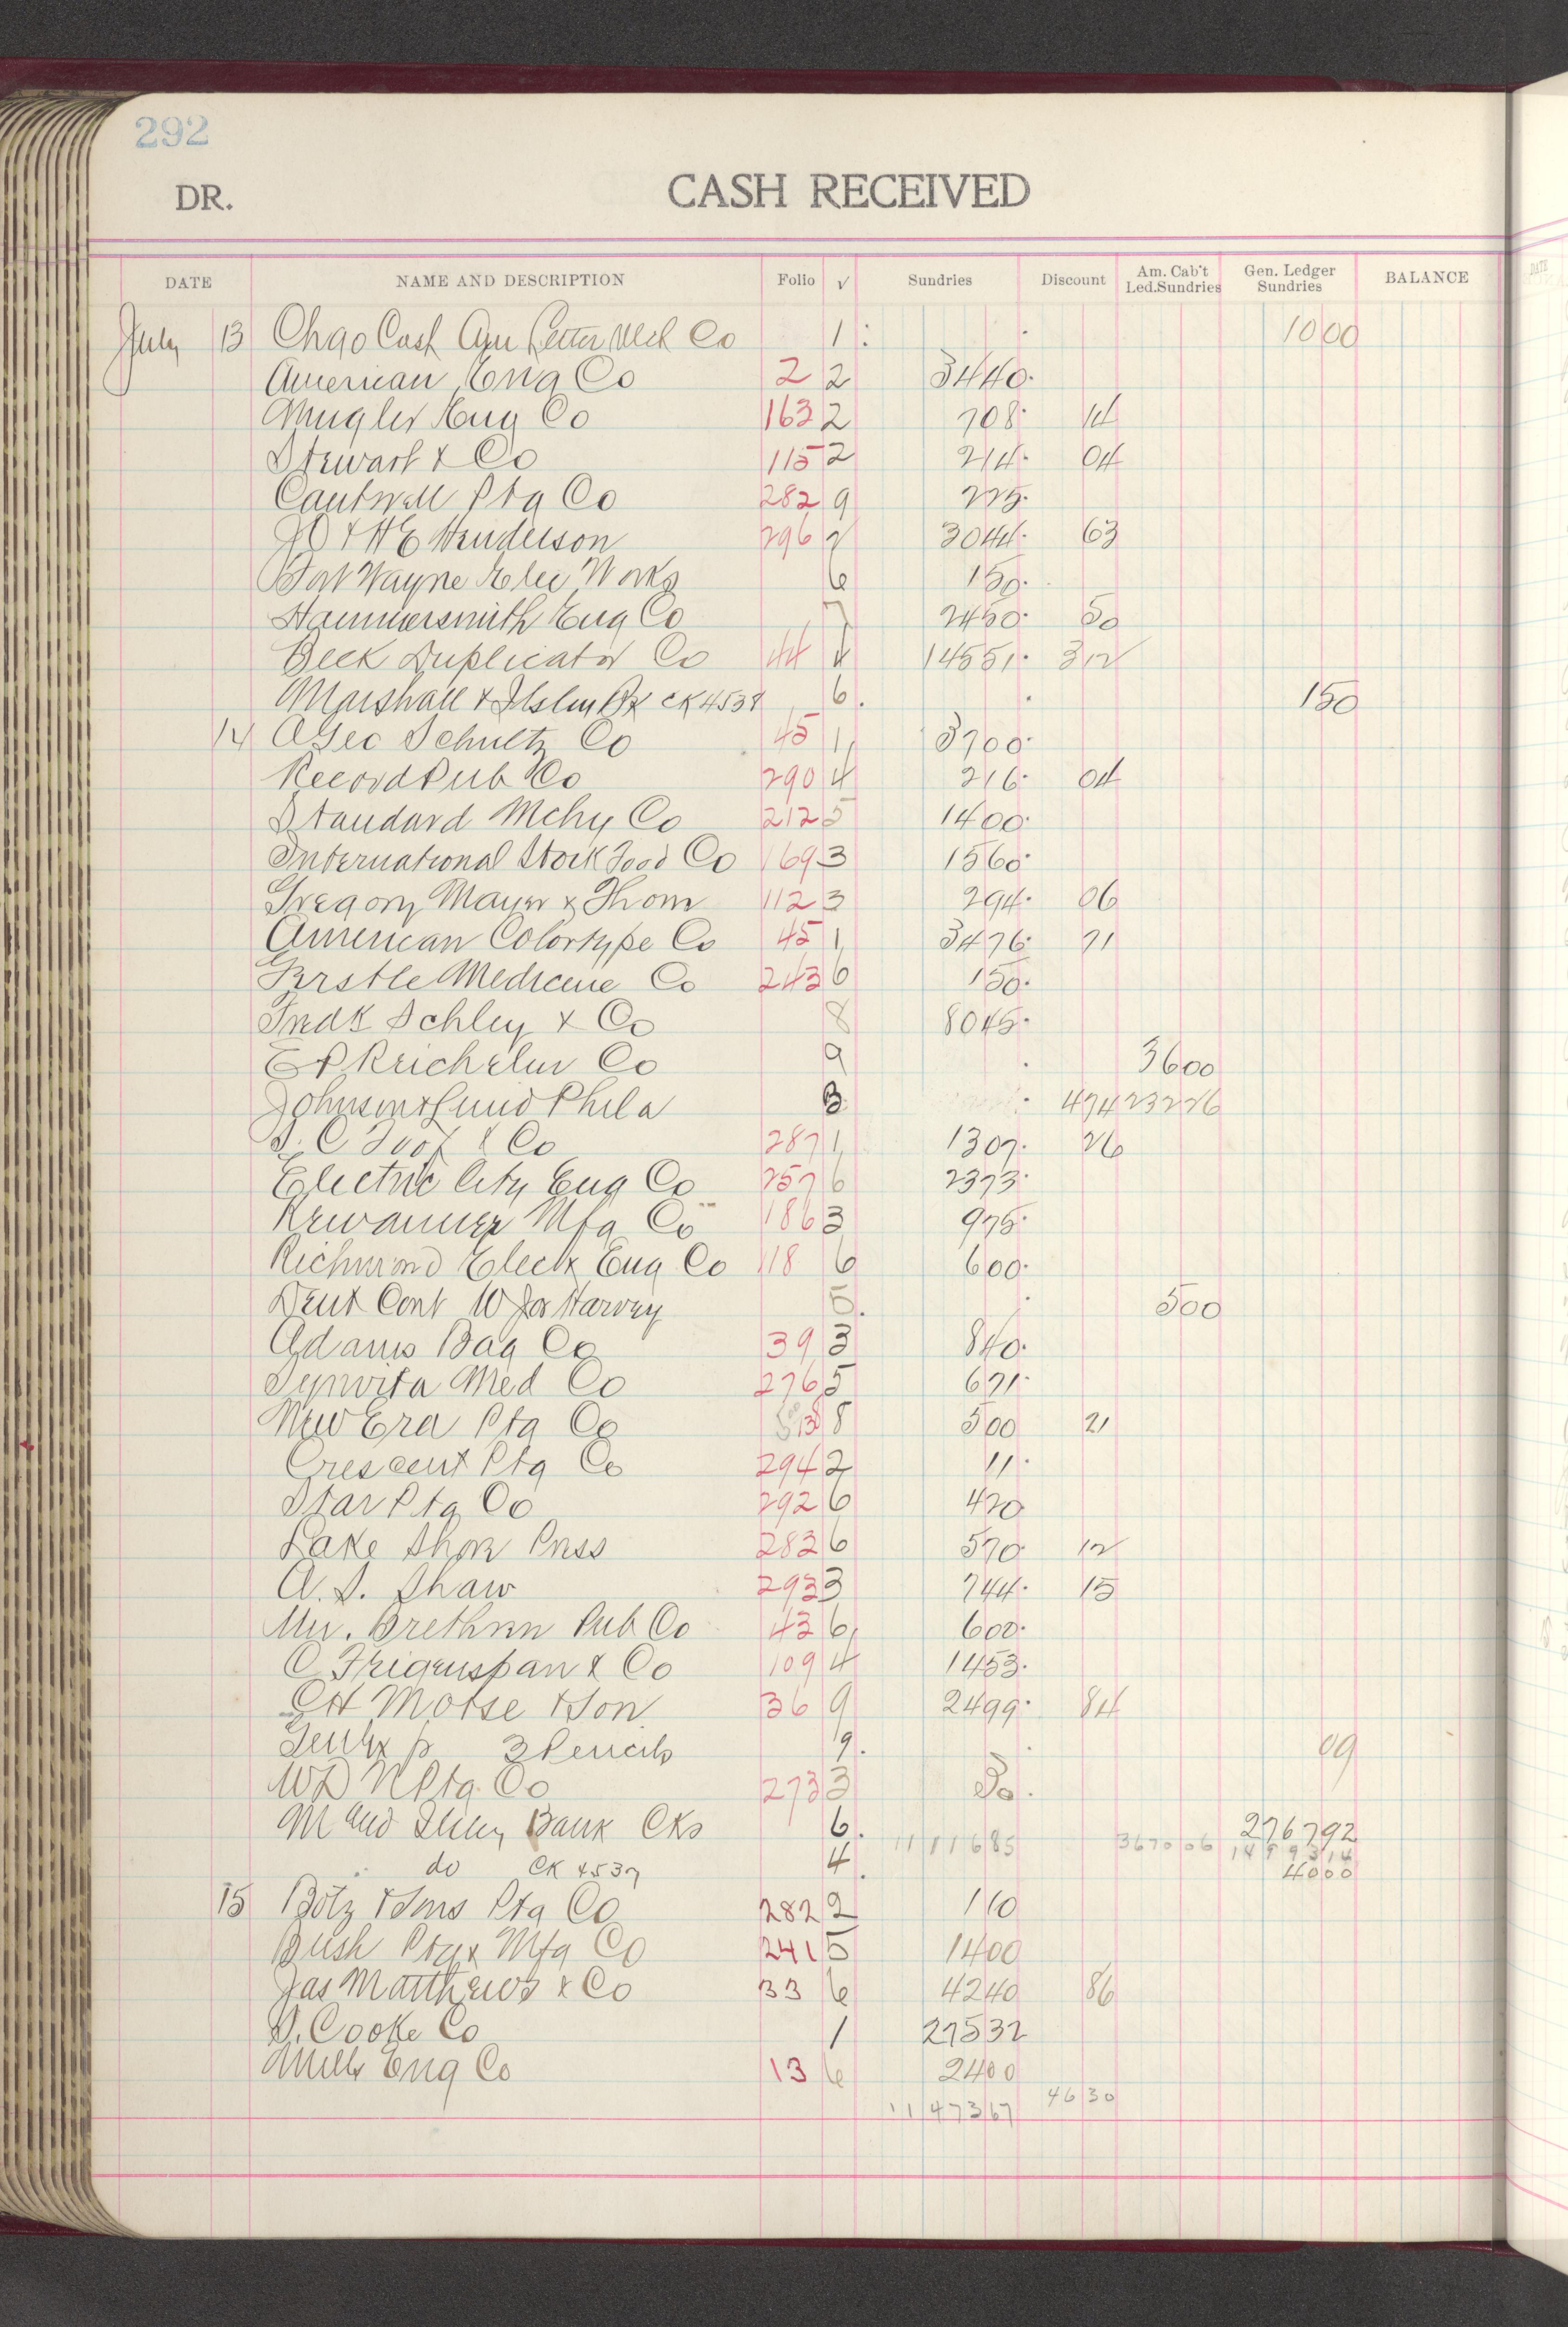 292
DR. CASH RECEIVED
DATE NAME AND DESCRIPTION Folio √ Sundries Discount Am. Cab't Led. Sundries Gen. Ledger Sundries BALANCE
July 13 Chgo Cash Am Co 1 1000
American Eng Co 2 2 3440
Mugler Eng Co 163 2 708 14
Stewart & Co 115 2 214 04
Cantwell Ptg Co 282 9 225
JO & HE Henderson 296 2 3044 63
Fort Wayne Elec Works 6 150
Hammersmith Eng Co 7 2450 50
Beck Duplicator Co 44 4 14551 312
Marshall & Ilsley Bk CK 4538 6 150
14 A Geo Schultz Co 45 1 3700
Record Pub Co 290 4 216 04
Standard Mchy Co 212 5 1400
International Stock Food Co 169 3 1560
Gregory Mayer & Thom 112 3 294 06
American Colortype Co 45 1 3476 71
Medicine Co 243 6 150
Fredk Schley & Co 8 8045
E P Co 9 3600
Johnson & Phila 3 474 23226
S. C Toof & Co 287 1 1307 26
Electric City Eng Co 257 6 2373
Kewaunee Mfg Co 186 3 975
Richmond Elect Eng Co 118 6 600
Cont W Jos Harvey 5 500
Adams Bag Co 39 3 840
Med Co 276 5 671
New Era Ptg Co 8 500 21
Crescent Ptg Co 294 2 11
Star Ptg Co 292 6 420
Lake Shore Press 282 6 570 12
A. S. Shaw 293 3 744 15
Brethren Pub Co 43 6 600
C Feigenspan & Co 109 4 1453
CH Morse & Son 36 9 2499 84
3 Pencils 9 09
W D N Ptg Co 273 3 30
M and Ilsley Bank CKs 6 276792
11 11685 3670 06 1499314
do CK 4537 4 4000
15 Botz & Sons Ptg Co 282 2 110
Bush Mfg Co 241 5 1400
Jas Matthews & Co 33 6 4240 86
D. Cooke Co 1 27532
Mills Eng Co 13 6 2400
11 47367 46 30